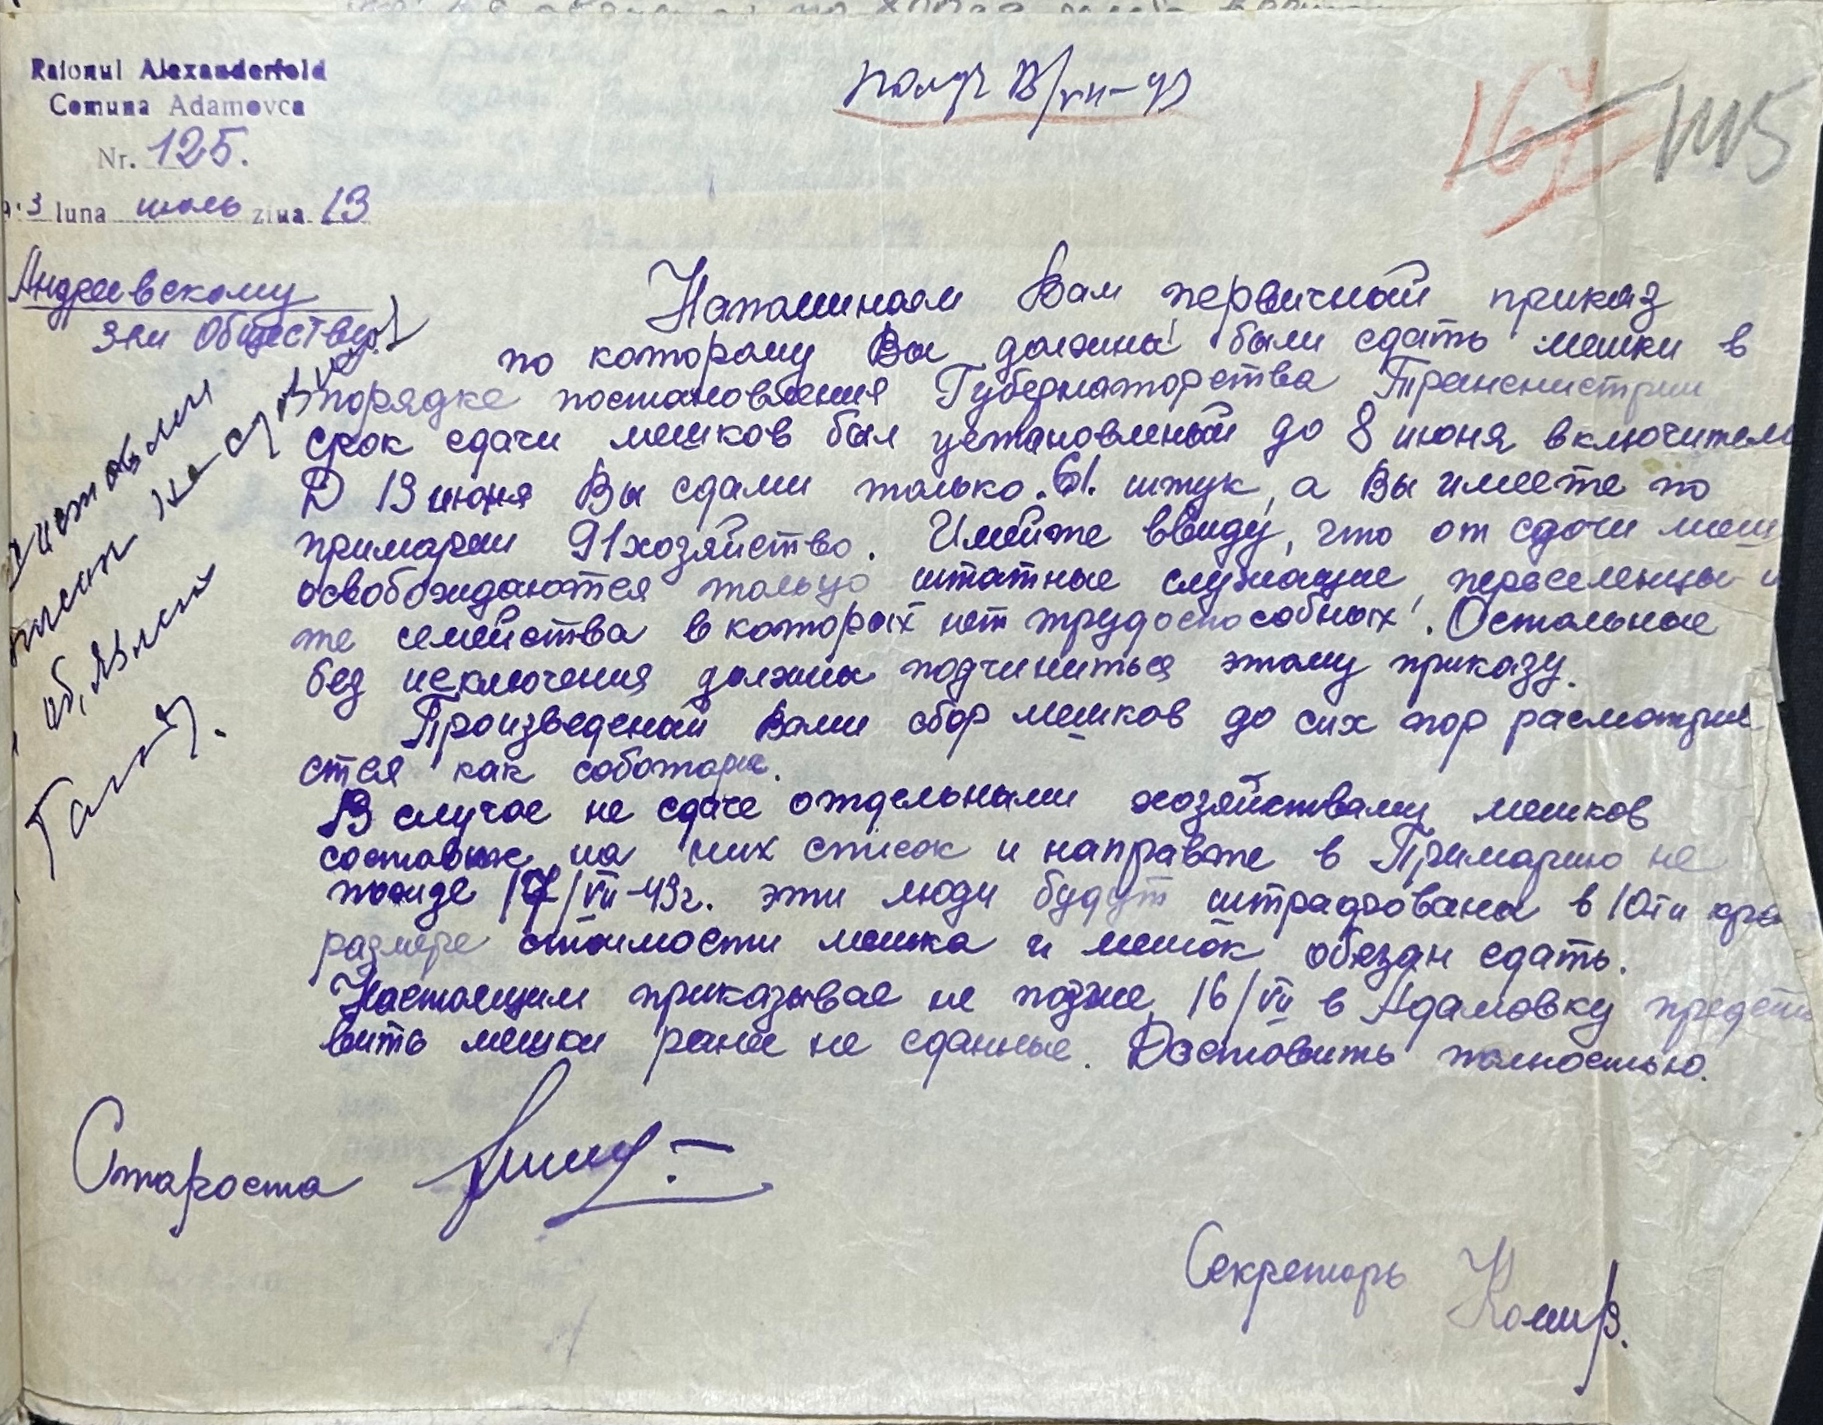 Raionul Alexanderfeld
Comuna Adamovca
Nr. 125.
3 luna июль ziua 13
Андреевскому
зем обществу
получ 13/VII-43
167 1115
Напоминаем Вам первичный приказ
по которому Вы должны были сдать мешки в
порядке постановления Губернаторства Транснистрии
срок сдачи мешков был установленый до 8 июня включитель
Д 13 июня Вы сдали только 61. штук, а Вы имеете по
примарии 91 хозяйство. Имейте ввиду, что от сдачи меш
освобождаются тольцо штатные служащие, переселенцы и
те семейства в которых нет трудоспособных. Остальные
без исключения должны подчиниться этому приказу.
Произведеный Вами сбор мешков до сих пор расматрив
ется как соботаре.
В случае не сдаче отдельными хозяйствами мешков
составте на них список и направте в Примарию не
позже 17/VII-43г. эти люди будут штрафованы в 10ти кра
размере стоимости мешка и мешок обязан сдать.
Настоящим приказывае не позже 16/VII в Адамовку предста
вить мешки ранее не сданные. Доставить полностью.
мешки не сдавших
об,явлен
Староста
Секретарь